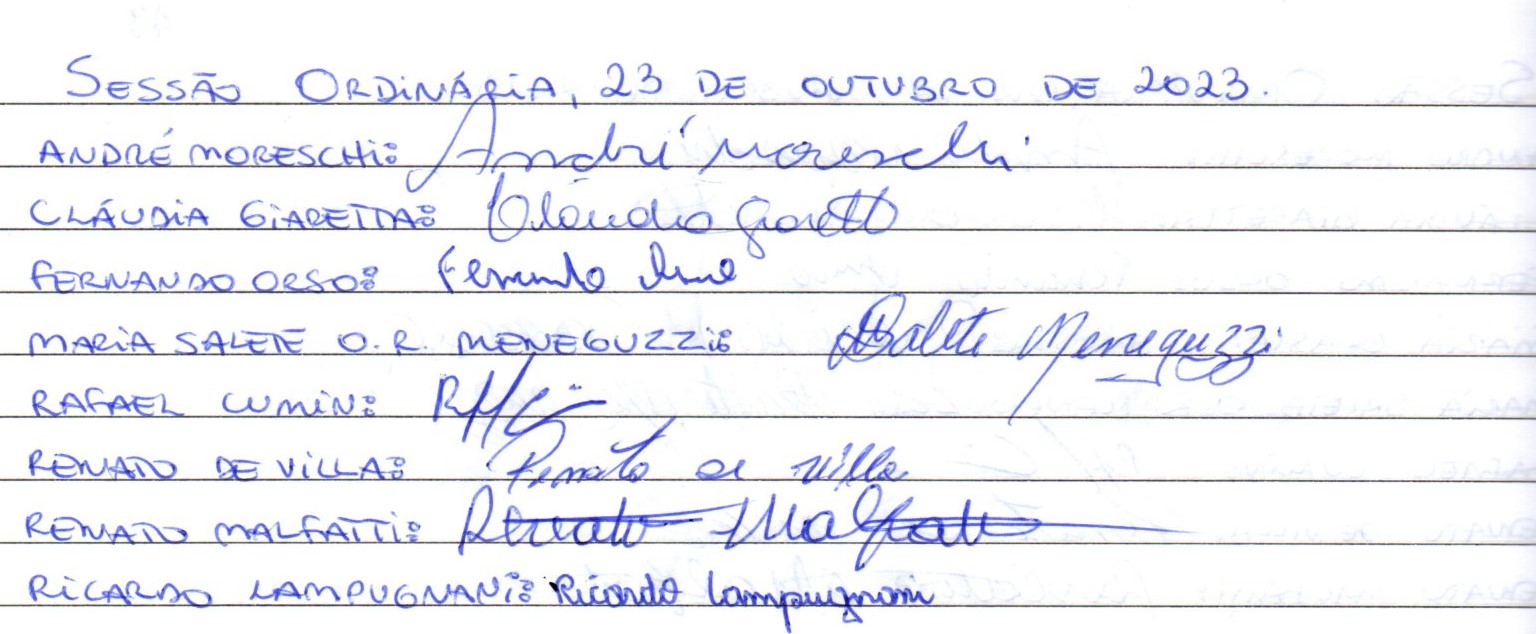 SESSÃO ORDINÁRIA, 23 DE OUTUBRO DE 2023.
ANDRÉ MORESCHI: André Moreschi
CLÁUDIA GIARETTA: Cláudia Giarett
FERNANDO ORSO: Fernando Orso
MARIA SALETE O. R. MENEGUZZI: Salete Meneguzzi
RAFAEL CUMIN:
RENATO DE VILLA: Renato de Villa
RENATO MALFATTI: Renato Malfatti
RICARDO LAMPUGNANI: Ricardo Lampugnani